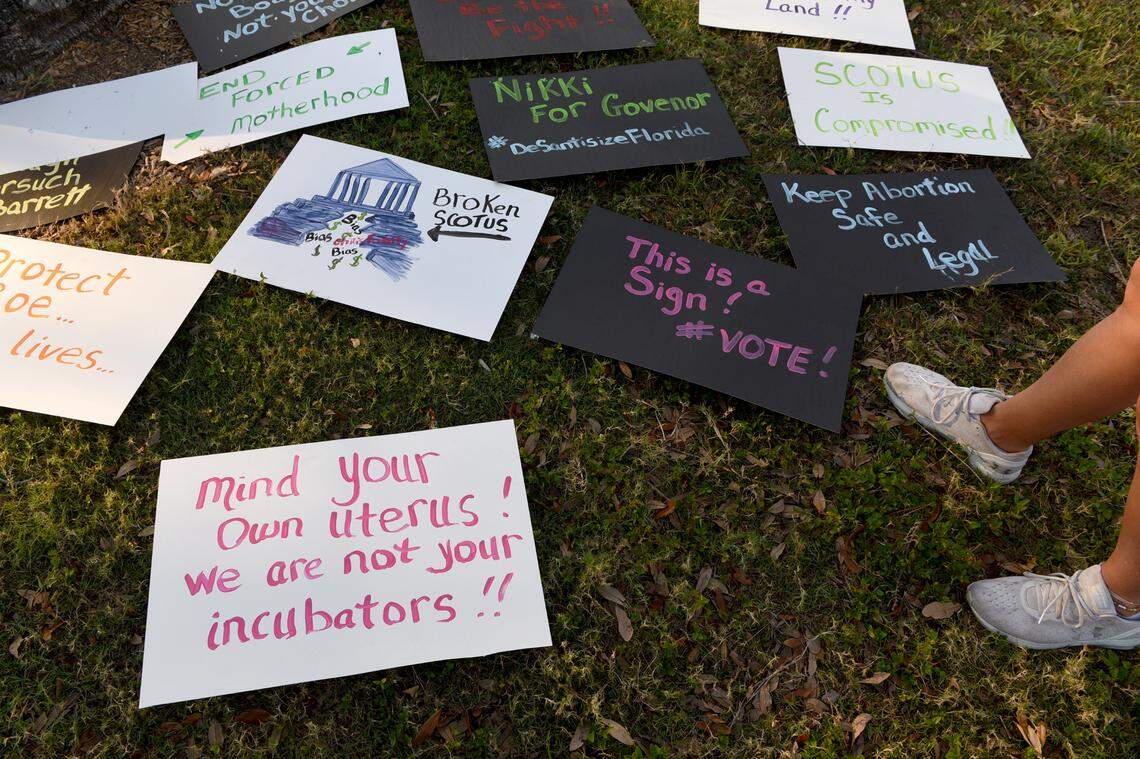 Not your
the Fight !!
Land !!
END
FORCED
Motherhood
NiKKi
For Govenor
#DeSantisizeFlorida
SCOTUS
Is
Compromised !!
Barrett
BroKen
SCOTUS
Bias
Bias
Bias
$
Keep Abortion
Safe
and
Legal
This is a
Sign !
#VOTE !
Protect
lives...
Mind your
Own uterus !
We are not your
incubators !!